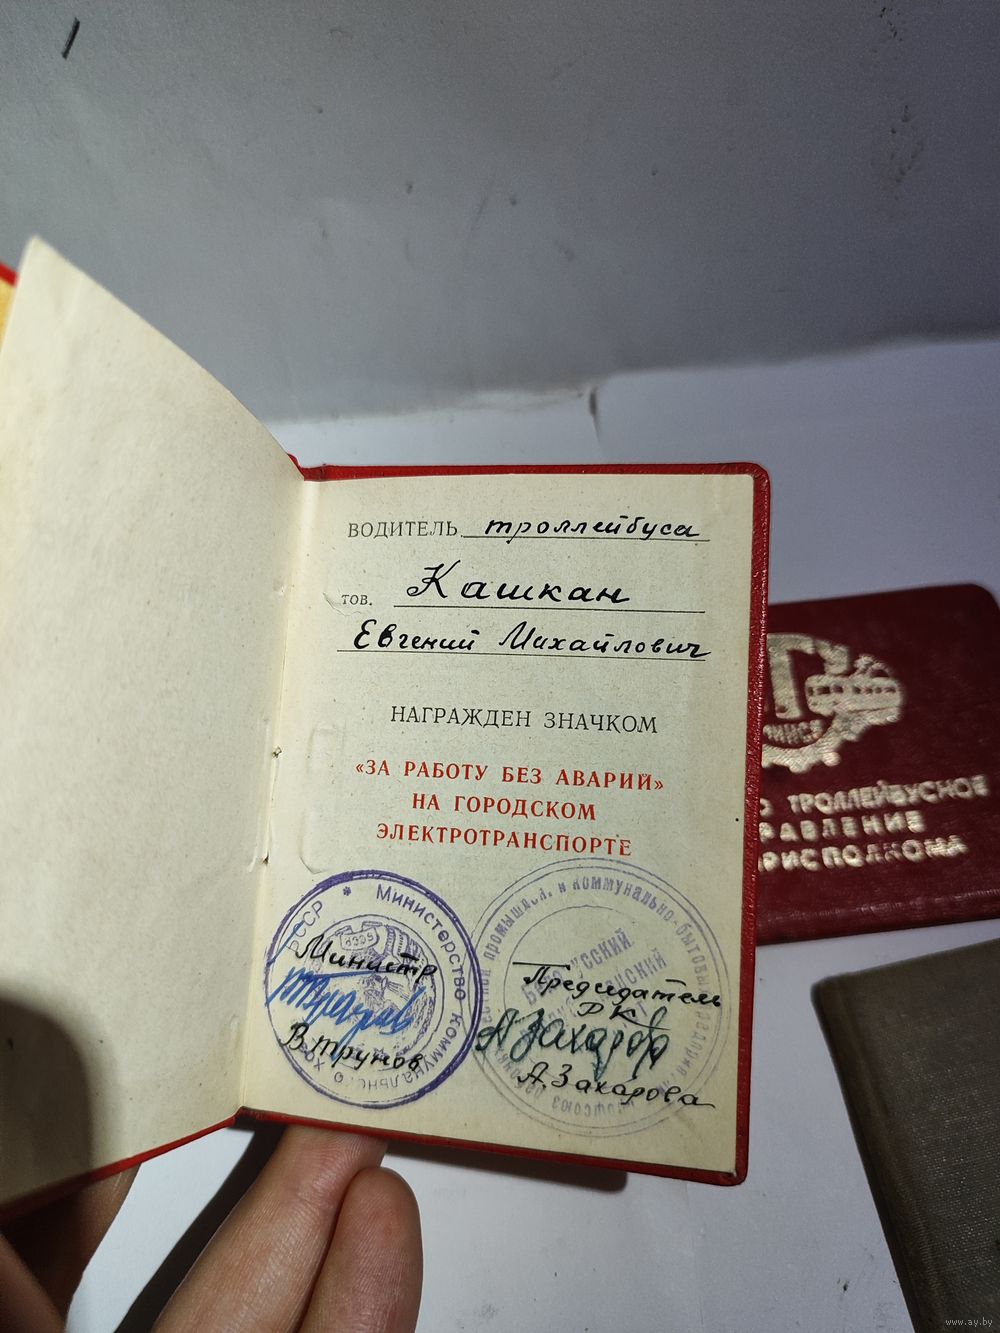 ВОДИТЕЛЬ троллейбуса
тов. Кашкан
Евгений Михайлович
НАГРАЖДЕН ЗНАЧКОМ
«ЗА РАБОТУ БЕЗ АВАРИЙ»
НА ГОРОДСКОМ
ЭЛЕКТРОТРАНСПОРТЕ
БССР * Министерство Коммунального хоз
СССР
Министр
В. Трунов
промышл. и коммунально-бытовых
БЕЛОРУССКИЙ
Председатель
РК
АЗахарова
А. Захарова
МИНСК
ТРОЛЛЕЙБУСНОЕ
РАВЛЕНИЕ
РИСПОЛКОМА
www.ay.by